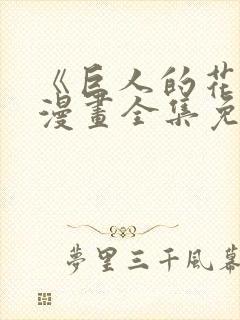 《巨人的花
漫畫全集免
夢里三千風幕